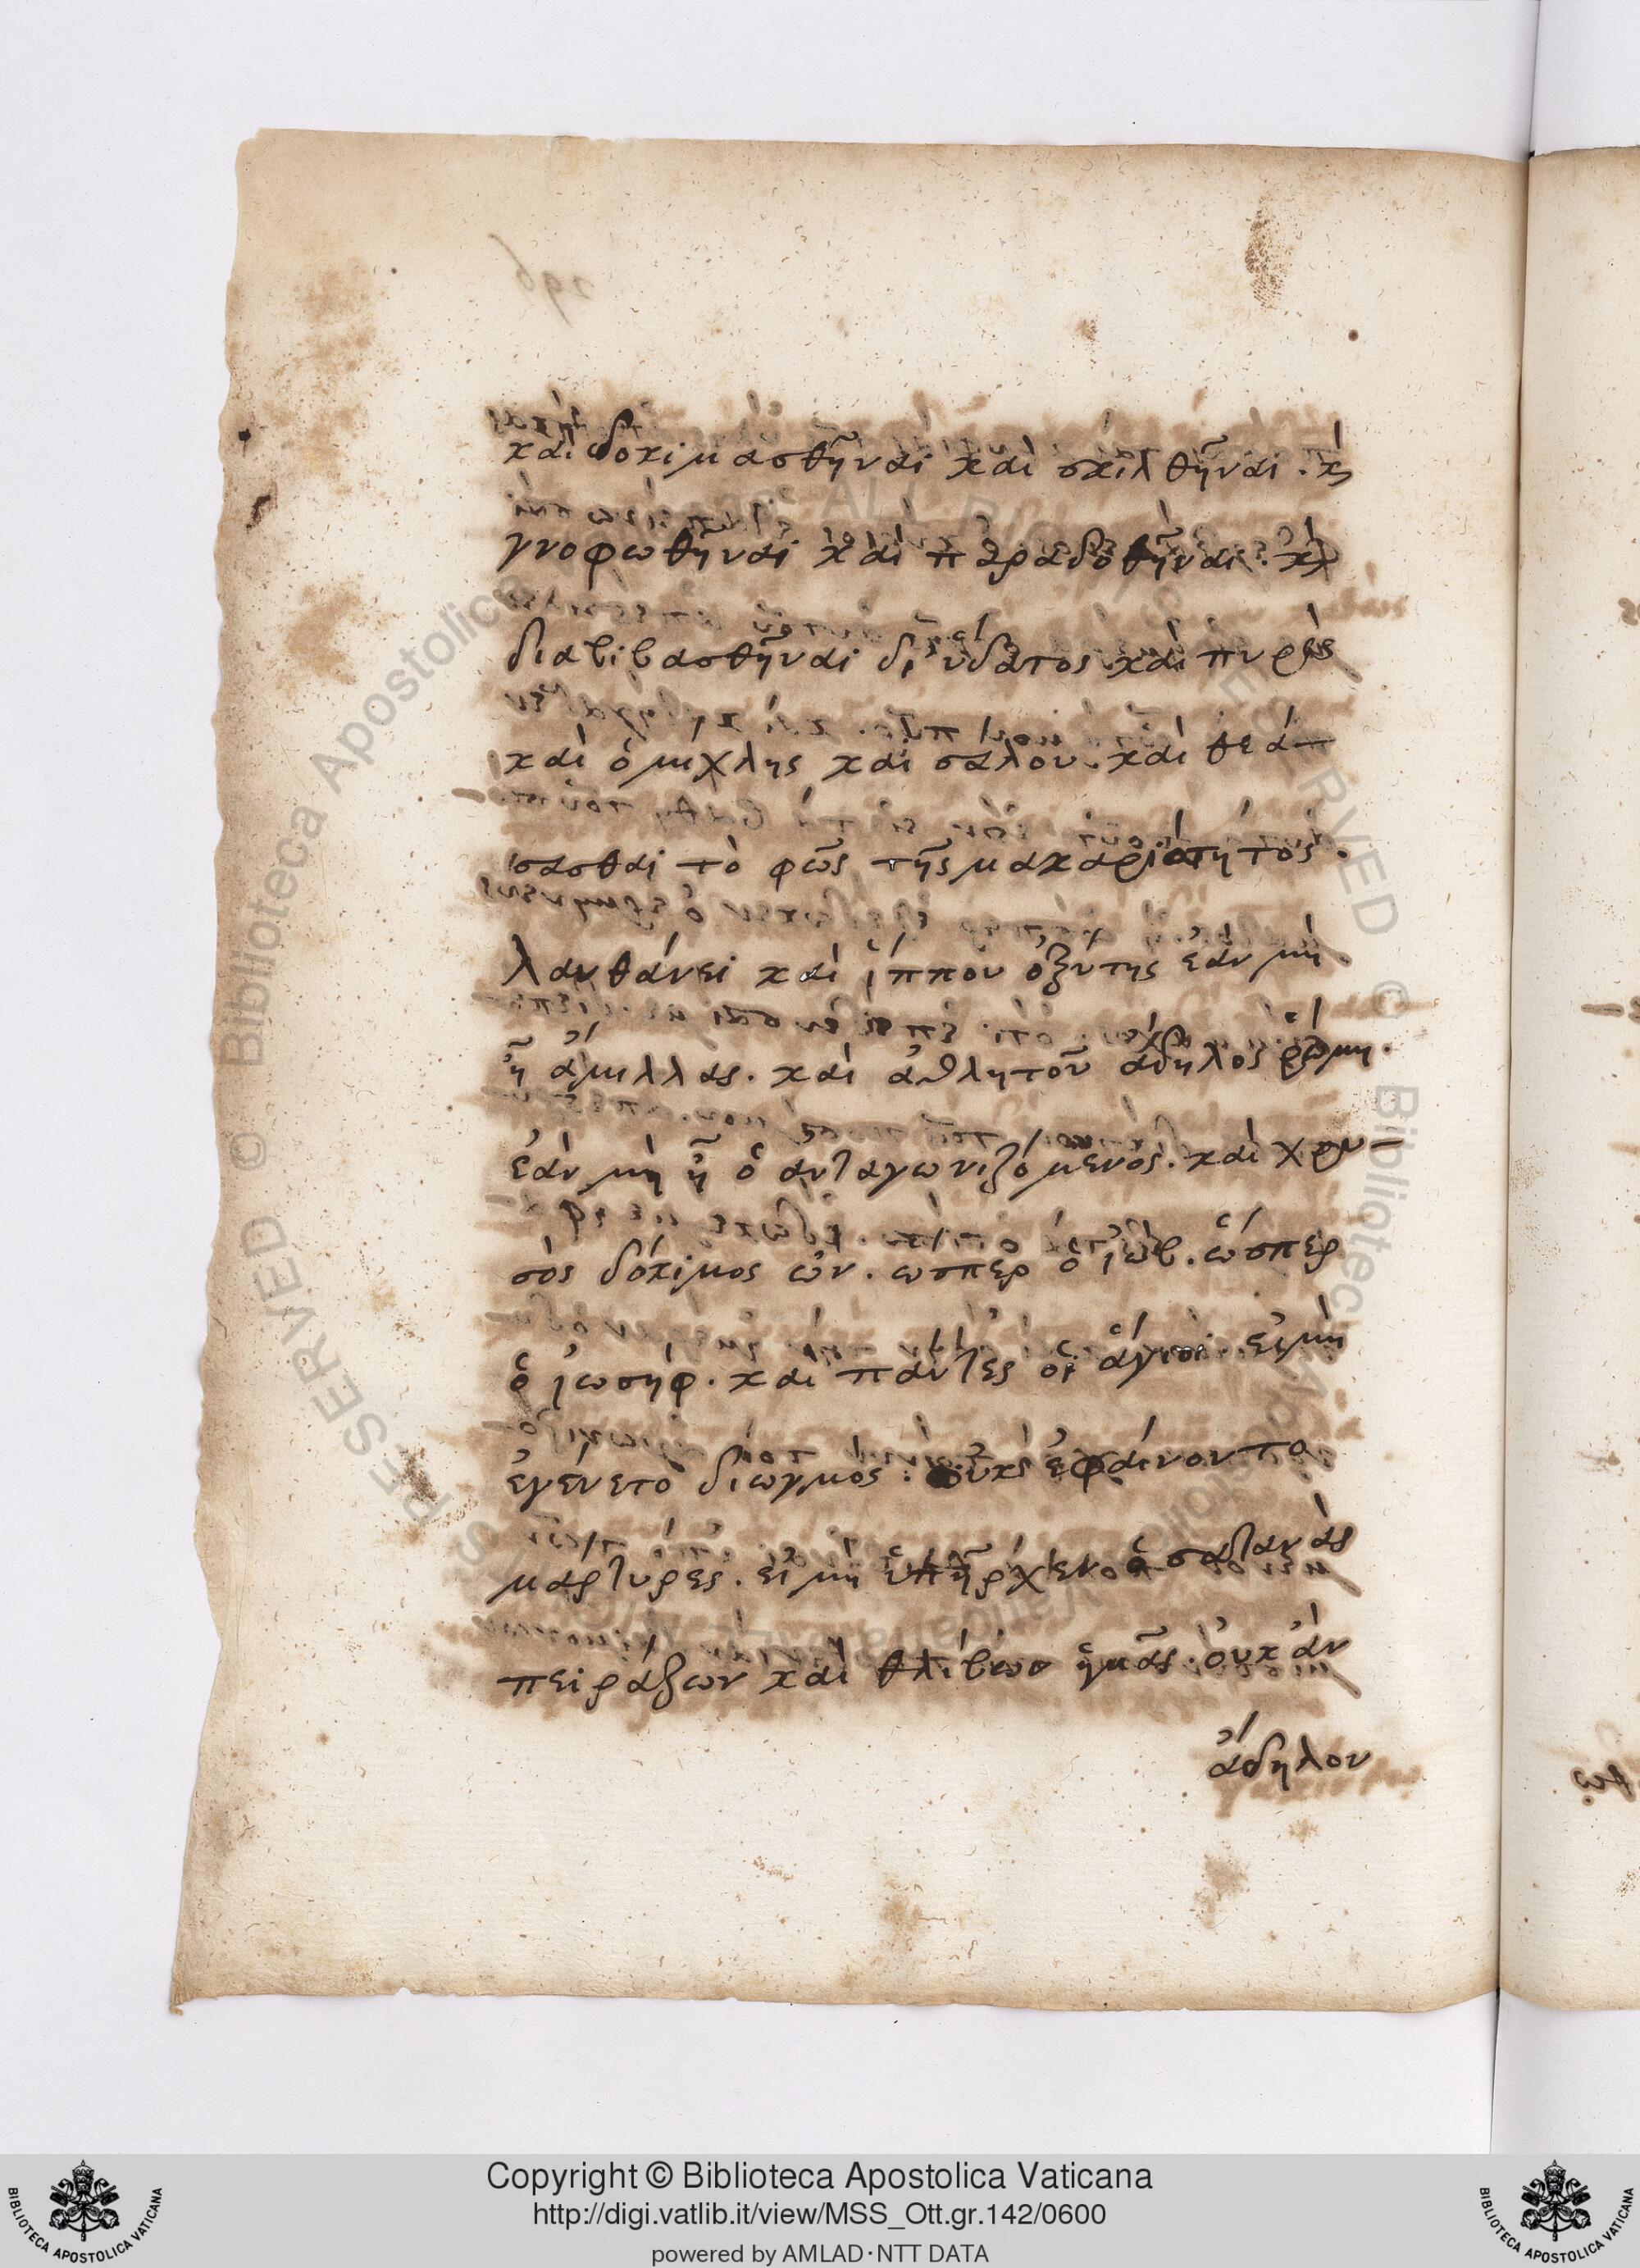 καὶ δοκιμασθῆναι καὶ σκιλθῆναι. κὶ
γνοφωθῆναι καὶ παραδοθῆναι. κὶ
διαβιβασθῆναι δι' ὕδατος καὶ πυρὸς
καὶ ὁμίχλης καὶ σάλου. καὶ θεά-
σασθαι τὸ φῶς τῆς μακαριότητος.
λανθάνει καὶ ἵππου ὀξύτης ἐὰν μὴ
ἦ ἅμιλλας. καὶ ἀθλητοῦ ἄδηλος ῥώμη.
ἐὰν μὴ ἦ ὁ ἀνταγωνιζόμενος. καὶ χρυ-
σὸς δόκιμος ὤν. ὥσπερ ὁ ἰώβ. ὥσπερ
ὁ ἰωσήφ. καὶ πάντες οἱ ἅγιοι. εἰ μὴ
ἐγένετο διωγμός. οὐκ ἐφαίνοντο
μάρτυρες. εἰ μὴ ὑπῆρχεν ὁ σατανᾶς
πειράζων καὶ θλίβων ἡμᾶς. οὐκ ἂν
ἄδηλον
Copyright © Biblioteca Apostolica Vaticana
http://digi.vatlib.it/view/MSS_Ott.gr.142/0600
powered by AMLAD·NTT DATA
BIBLIOTECA APOSTOLICA VATICANA
BIBLIOTECA APOSTOLICA VATICANA